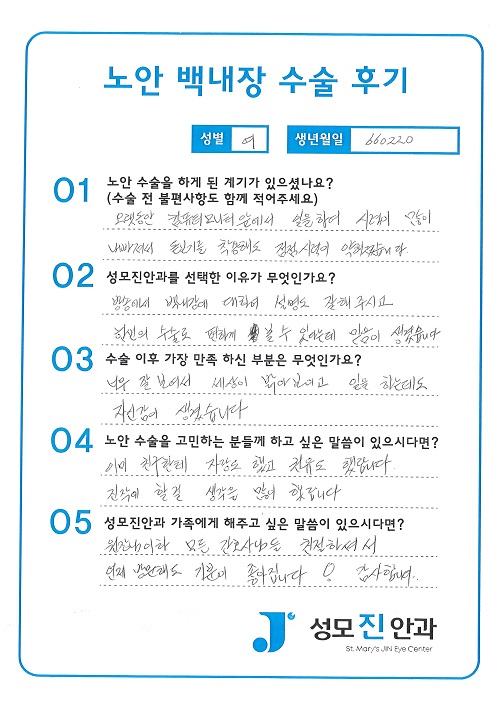 노안 백내장 수술 후기
성별 여 생년월일 660220
01 노안 수술을 하게 된 계기가 있으셨나요?
(수술 전 불편사항도 함께 적어주세요)
오랫동안 컴퓨터모니터앞에서 일을하며 시력이 많이
나빠져서 돋보기를 착용해도 점점시력이 약해졌습니다.
02 성모진안과를 선택한 이유가 무엇인가요?
방송에서 백내장에 대하여 설명도 잘해주시고
한번의 수술로 편하게 볼 수 있다는데 믿음이 생겼습니다
03 수술 이후 가장 만족 하신 부분은 무엇인가요?
너무 잘 보여서 세상이 밝아보이고 일을 하는데도
자신감이 생겼습니다
04 노안 수술을 고민하는 분들께 하고 싶은 말씀이 있으시다면?
이미 친구한테 자랑도 했고 권유도 했답니다.
진작에 할걸 생각을 많이 했답니다
05 성모진안과 가족에게 해주고 싶은 말씀이 있으시다면?
원장님이하 모든 간호사님들 친절하셔서
언제 방문해도 기분이 좋아집니다 ! 감사합니다.
성모진안과
St. Mary's JIN Eye Center